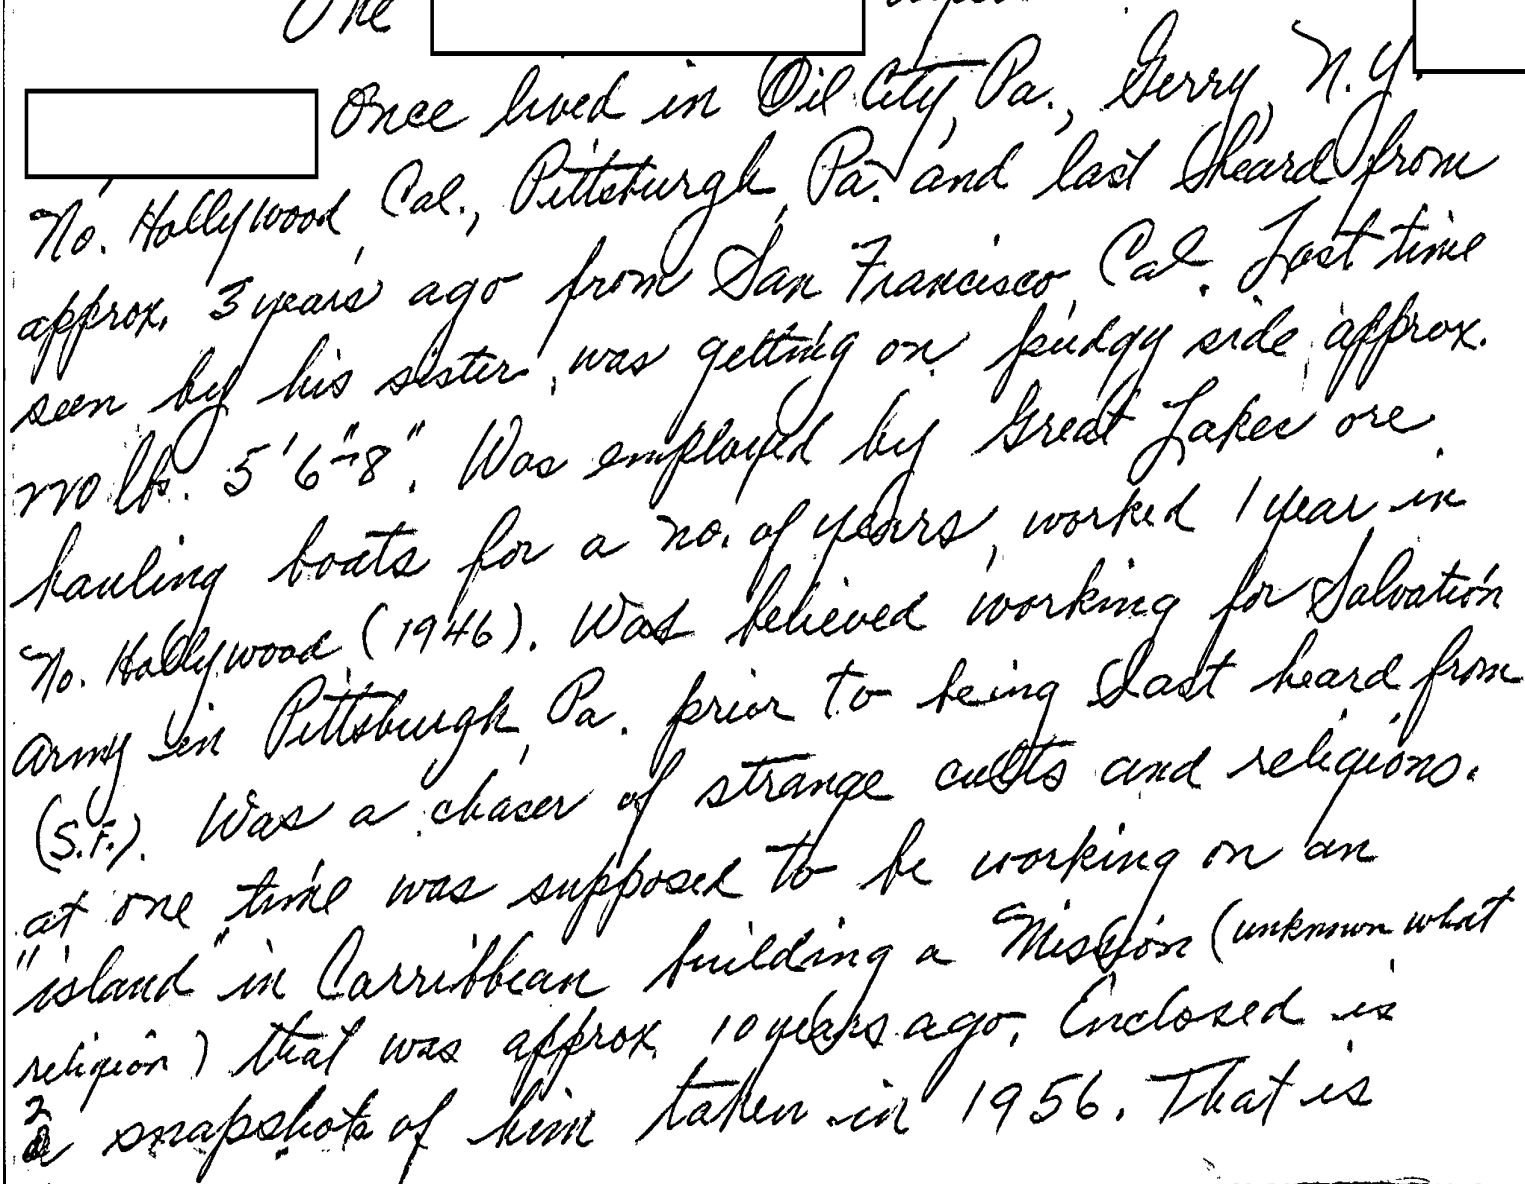 One
Once lived in Oil City, Pa., Gerry, N.Y.
No. Hollywood, Cal., Pittsburgh, Pa. and last heard from
approx. 3 years ago from San Francisco, Cal. Last time
seen by his sister, was getting on pudgy side, approx.
lbs. 5'6"-8". Was employed by Great Lakes ore
hauling boats for a no. of years, worked 1 year in
No. Hollywood (1946). Was believed working for Salvation
Army in Pittsburgh, Pa. prior to being last heard from
(S.F.). Was a chaser of strange cults and religions.
at one time was supposed to be working on an
"island" in Carribbean building a Mission (unknown what
religion) that was approx. 10 years ago. Enclosed is
2 snapshots of him taken in 1956. That is